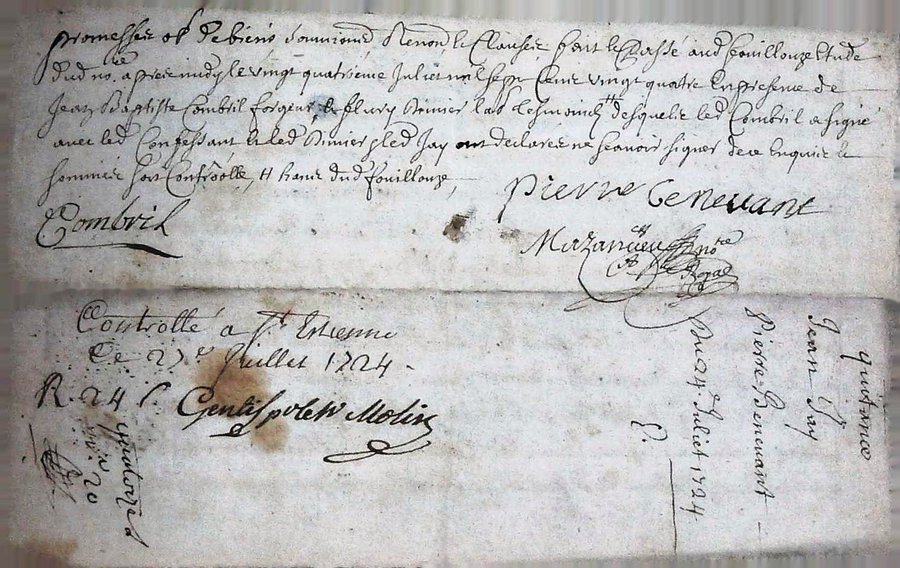 promesses ob de biens soumions Renon et Clauses fait et passé aud fouillouze Etude
dud no.re apres midy le vingt quatrieme Juliet mil sept Cens vingt quatre En presence de
Jean Baptiste Combril forgeur et fleury Rimier lab tesmoings desquels led Combril a signé
avec led Confessant et led Rimier et led Jay ont declares ne scavoir signer de ce Enquis et
sommes soit Controolle, aud fouillouze,
Pierre Benevant
Combril
no.re
Royal
Controllé a St Estienne
Le 27e Juillet 1724.
R. 24 s
Molin
quittance
Jean Jay
Pierre Benevant
Du 24 Juliet 1724.